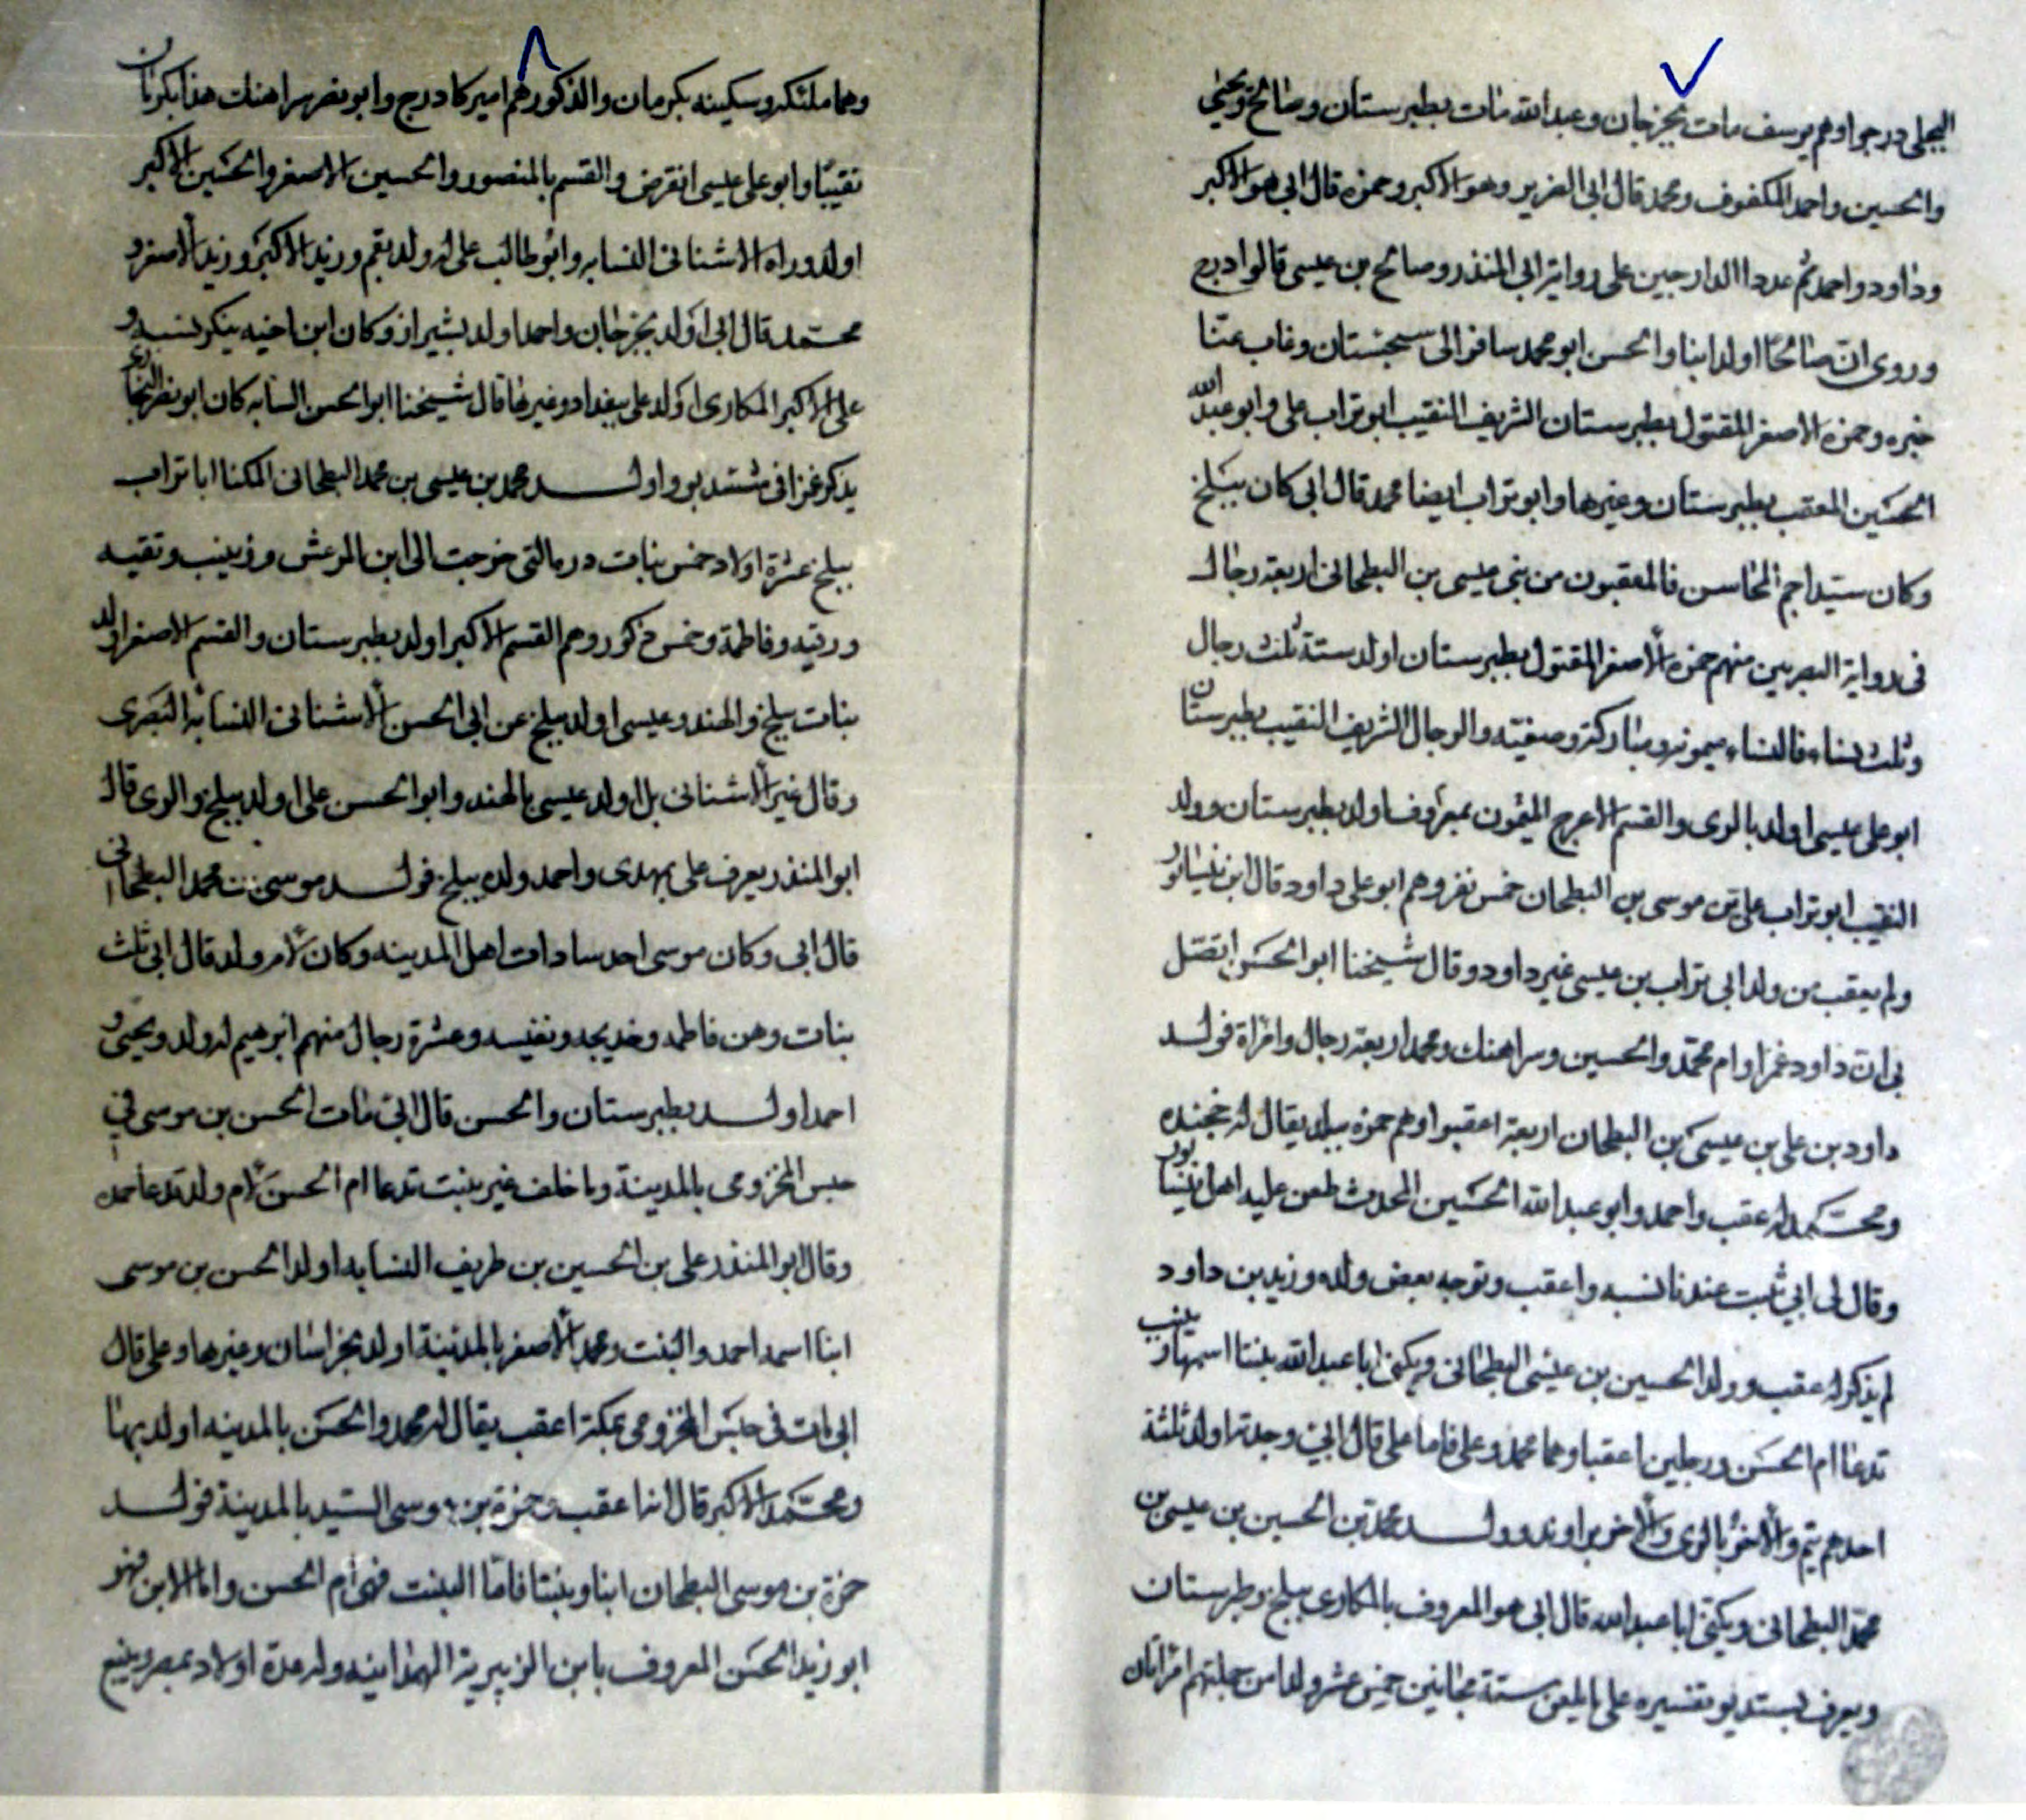 البجلي درجوا وهم يوسف مات بجرجان وعبدالله مات بطبرستان وصالح ويحيى
والحسين واحمد المكفوف ومحمد قال ابى الضرير وهو الاكبر وحمزه قال ابى هو الاكبر
وداود واحمد ثم عددا الدارجين على رواية ابى المنذر وصالح بن عيسى قالوا درج
وروى ان صالحا اولد ابنا والحسن ابو محمد سافر الى سجستان وغاب عنا
خبره وحمزه الاصغر المقتول بطبرستان الشريف النقيب ابو تراب على وابو عبدالله
الحسين المعقب بطبرستان وغيرها وابو تراب ايضا محمد قال ابى كان ببلخ
وكان سيدا جم المحاسن فالمعقبون من بنى عيسى بن البطحانى اربعة رجال
فى رواية البصريين منهم حمزه الاصغر المقتول بطبرستان اولد ستة ثلث رجال
وثلث نساء فالنساء ميمونه ومباركة وصفيته والرجال الشريف النقيب بطبرستان
ابو على عيسى اولد بالرى والقسم الاعرج بمعروف اولد بطبرستان وولد
النقيب ابو تراب على بن موسى بن البطحان خمس نفر وهم ابو على داود قال ابن نيسابور
ولم يعقب من ولد ابى تراب بن عيسى غير داود وقال شيخنا ابو الحسن اتصل
بى ان داود عمر وام محمد والحسين وسراهنك ومحمد اربعة رجال وامراة فولد
داود بن على بن عيسى بن البطحان اربعة اعقبوا وهم حمزه ببلد يقال له خجنده
ومحمد له عقب واحمد وابو عبدالله الحسين المحدث طعن عليه اهل نيسابور
وقال لى ابى ثبت عندنا نسبه واعقب وتوجه بعض ولده وزيد بن داود
لم يذكر له عقب وولد الحسين بن عيسى البطحانى ويكنى ابا عبدالله بنتا اسمها زينب
تدعا ام الحسن ورجلين اعقبا وهما محمد وعلى فاما على قال ابى وجدته اولد ثلثة
احدهم بقم والاخر بالرى والاخر براوند وولد محمد بن الحسين بن عيسى بن
محمد البطحانى ويكنى ابا عبدالله قال ابى هو المعروف بالمكارى ببلخ وطبرستان
ويعرف بستديو تفسيره على ستة مجانين خمس عشر ولدا من جملتهم امراتان
وهما ملكة وسكينه بكرمان والذكور هم اميركا درج وابو نصر سراهنك هذا بكرمان
نقيبا وابو على عيسى انقرض والقسم بالمنصور والحسين الاصغر والحسين الاكبر
اولد وراه الاشنانى النسابه وابو طالب على له ولد بقم وزيد الاكبر وزيد الاصغر و
محمد قال ابى اولد بجرجان واحمد اولد بشيراز وكان ابن اخيه ينكر نسبه و
على الاكبر المكارى اولد على ببغداد وغيرها قال شيخنا ابو الحسن النسابه كان ابو نصر البخارى
يذكر غمزا فى ستديو واولد محمد بن عيسى بن محمد البطحانى المكنا ابا تراب
ببلخ عشرة اولاد خمس بنات دره التى خرجت الى ابن المرعش وزينب وتقيه
ورقيه وفاطمة وخمس ذكور وهم القسم الاكبر اولد بطبرستان والقسم الاصغر اولد
بنات ببلخ والهند وعيسى اولد ببلخ عن ابى الحسن الاشنانى النسابه البصرى
وقال غير الاشنانى بل اولد عيسى بالهند وابو الحسن على اولد ببلخ والرى قال
ابو المنذر يعرف على بمهدى واحمد ولده ببلخ فولد موسى بن محمد البطحانى
قال ابى وكان موسى احد سادات اهل المدينه وكان لام ولد قال ابى ثلث
بنات وهن فاطمه وخديجه ونفيسه وعشرة رجال منهم ابرهيم له ولد ويحيى و
احمد اولد بطبرستان والحسن قال ابى مات الحسن بن موسى فى
حبس المخزومى بالمدينة وما خلف غير بنت تدعا ام الحسن لام ولد تدعا حمده
وقال ابو المنذر على بن الحسين بن طريف النسابه اولد الحسن بن موسى
ابنا اسمه احمد والبنت ومحمد الاصغر بالمدينة اولد بخراسان وغيرها وعلى قال
ابى مات فى حبس المخزومى بمكة اعقب يقال له محمد والحسن بالمدينه اولد بها
ومحمد الاكبر قال انا عقب وحمزة بن موسى السيد بالمدينة فولد
حمزة بن موسى البطحان ابنا وبنتا فاما البنت فهى ام الحسن واما الابن فهو
ابو زيد الحسن المعروف بابن الزبيرية الهمدانيه وله عدة اولاد بمصر وينبع